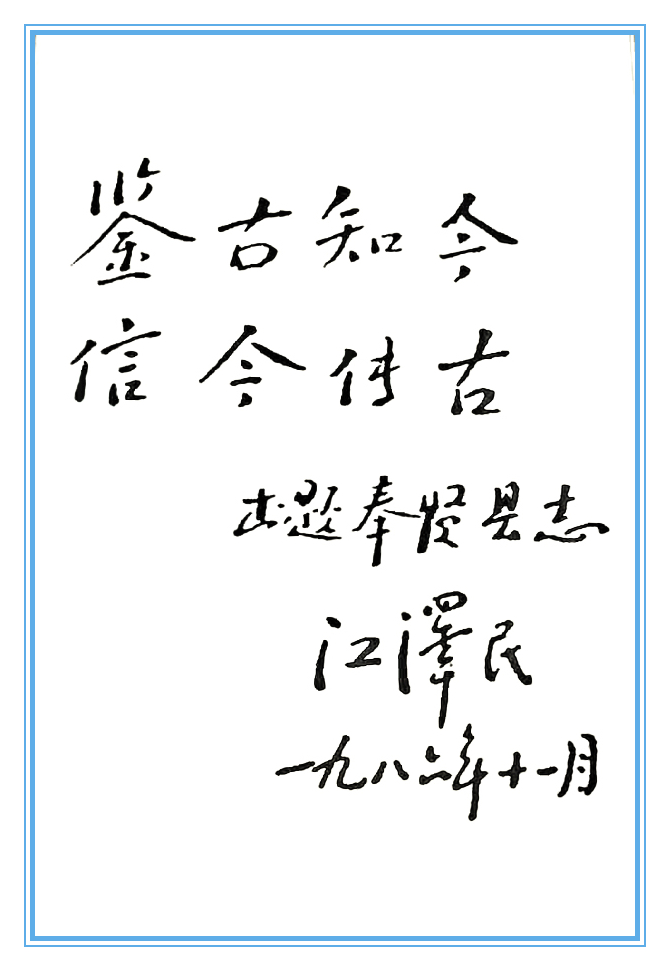 鉴古知今
信今传古
书题奉贤县志
江澤民
一九八六年十一月